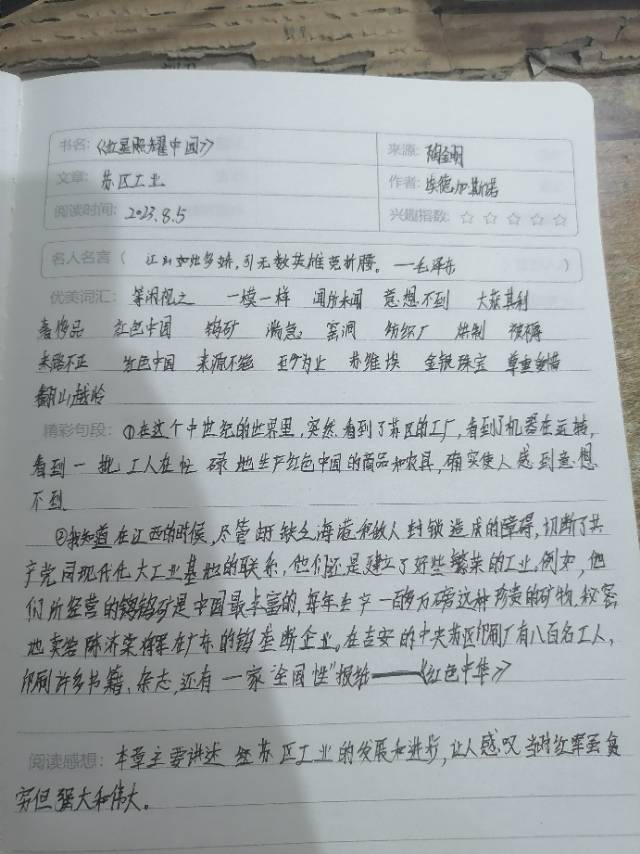 书名:《红星照耀中国》 来源:
文章: 苏区工业 作者: 埃德加斯诺
阅读时间: 2023.8.5 兴趣指数: ☆ ☆ ☆ ☆ ☆
名人名言 ( 江山如此多娇,引无数英雄竞折腰。——毛泽东 )
优美词汇: 等闲视之 一模一样 闻所未闻 意想不到 大获其利
奢侈品 红色中国 钨矿 湍急 窑洞 纺织厂 烘制
来路不正 红色中国 来源不绝 苏维埃 金银珠宝
翻山越岭
精彩句段: ①在这个中世纪的世界里,突然看到了苏区的工厂,看到了机器在运转,
看到一批工人在忙碌地生产红色中国的商品和农具,确实使人感到意想
不到
②我知道在江西的时候,尽管由于缺乏海港和敌人封锁造成的障碍,切断了共
产党同现代化大工业基地的联系,他们还是建立了好些繁荣的工业,例如,他
们所经营的钨矿是中国最丰富的,每年生产一百多万磅这种珍贵的矿物,秘密
地卖给陈济棠将军在广东的钨垄断企业。在吉安的中央苏区印刷厂有八百名工人,
印刷许多书籍、杂志,还有一家"全国性"报纸——《红色中华》
阅读感想: 本章主要讲述 苏区工业的发展和进步,让人感叹当时红军虽贫
穷但强大和伟大。